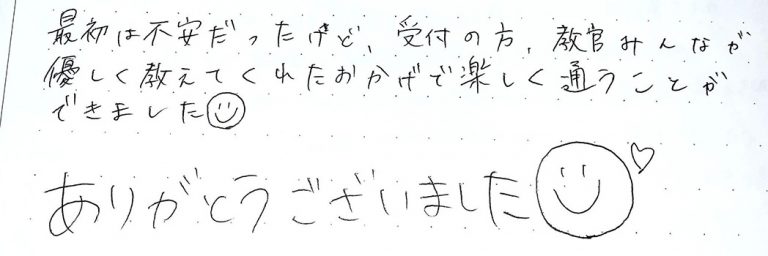 最初は不安だったけど、受付の方、教官みんなが
優しく教えてくれたおかげで楽しく通うことが
できました
ありがとうございました